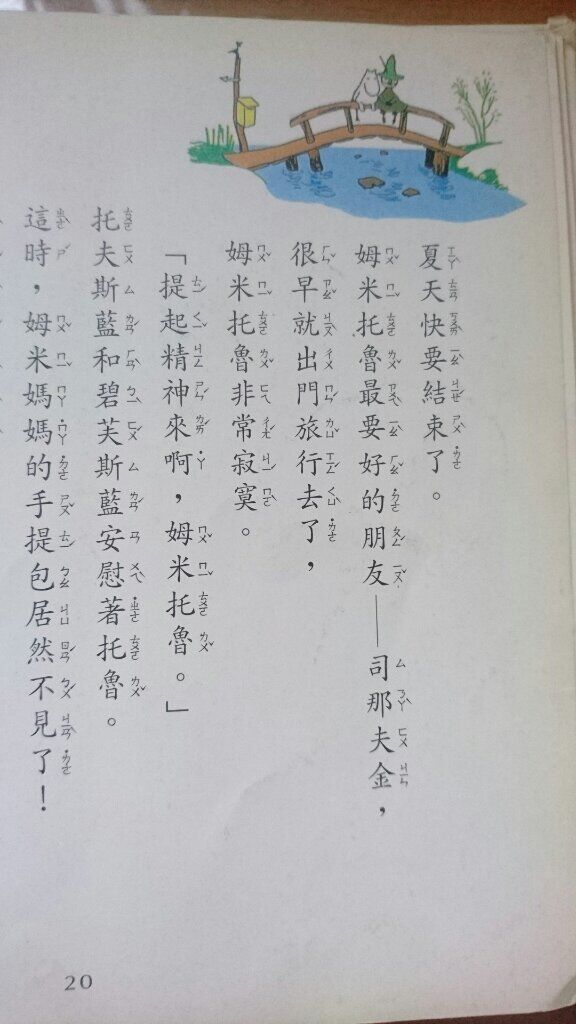 夏天快要結束了。
姆米托魯最要好的朋友——司那夫金，
很早就出門旅行去了，
姆米托魯非常寂寞。
「提起精神來啊，姆米托魯。」
托夫斯藍和碧芙斯藍安慰著托魯。
這時，姆米媽媽的手提包居然不見了！
20